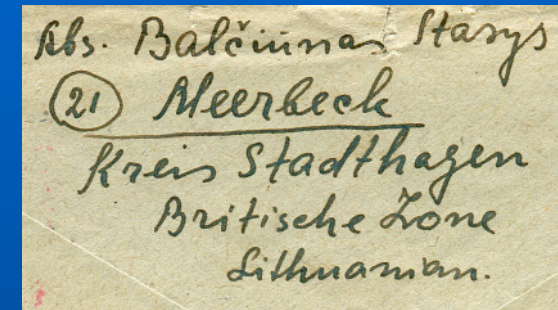 Abs. Balčiunas Stasys
(21) Meerbeck
Kreis Stadthagen
Britische Zone
Lithuanian.